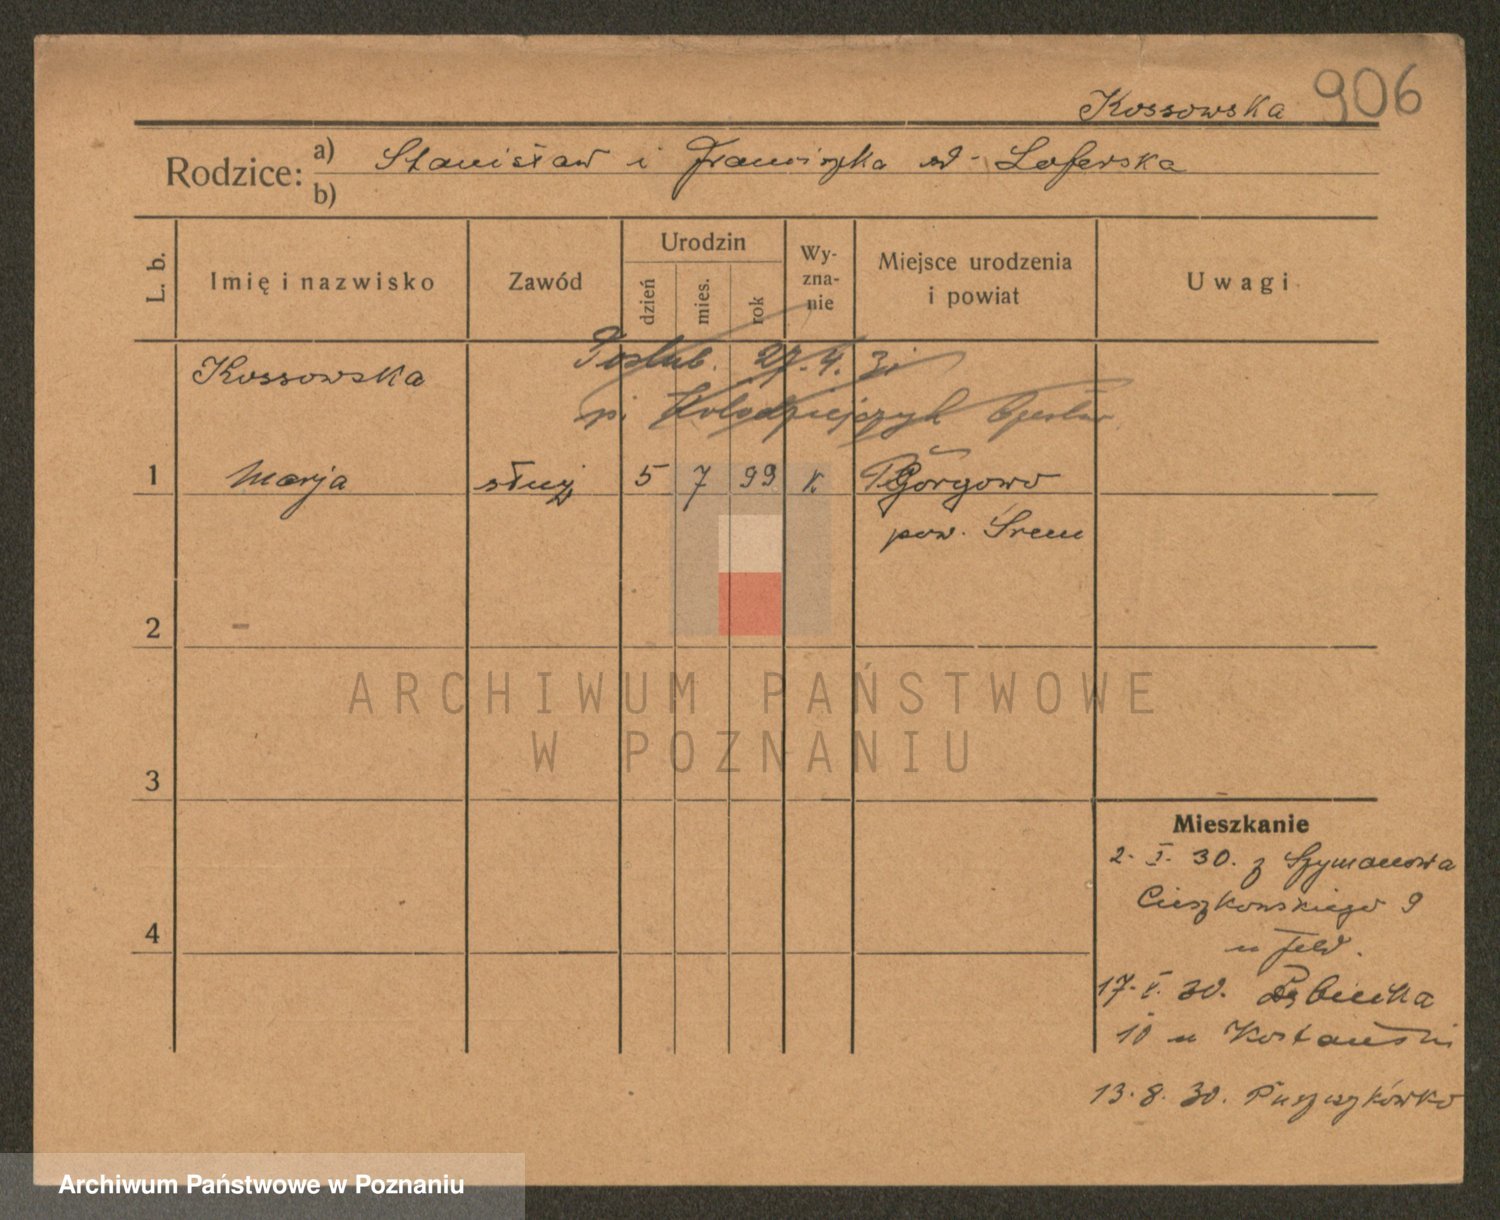 Kossowska 906
Rodzice: a) Stanisław i Franciszka
b)
L. b. Imię i nazwisko Zawód Urodzin dzień mies. rok Wyznanie Miejsce urodzenia i powiat Uwagi
Poślub. 27.4.31
p. Kołodziejczyk Czesław
Kossowska
1 Marja służ 5 7 99 k
pow. Śrem
2
3
4
ARCHIWUM PAŃSTWOWE
W POZNANIU
Mieszkanie
2. I. 30. z Szymanowa
Cieszkowskiego 9
u
17. V. 30.
10 u
13. 8. 30. Puszczykówko
Archiwum Państwowe w Poznaniu